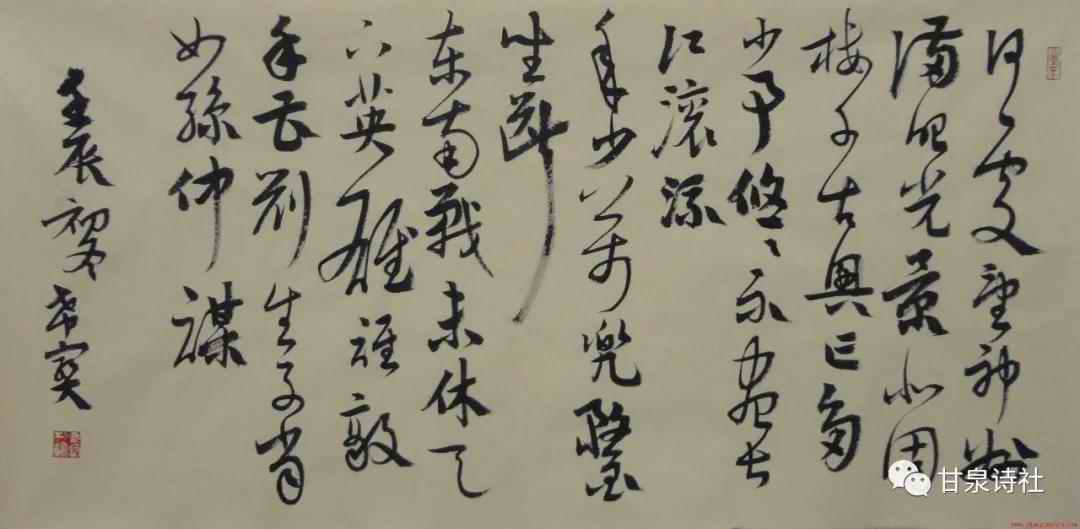 何处望神州
满眼光景北固
楼千古興亡多
少事悠々不尽长
江滚流
年少万兜鍪
坐断
东南战未休天
下英雄谁敌
手曹刘生子当
如孫仲謀
壬辰初冬
甘泉诗社